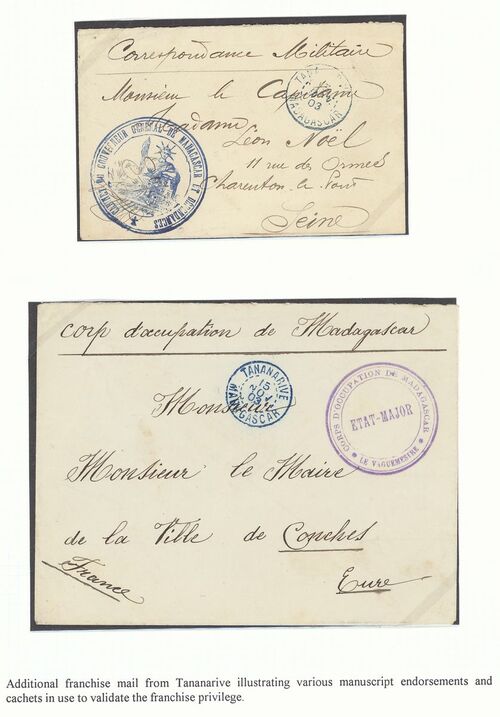 Correspondance Militaire
Monsieur le Capitaine
Madame
Léon Noël
11 rue des Ormes
Charenton-le-Pont
Seine
MADAGASCAR
03
CABINET DU GOUVERNEUR GENERAL DE MADAGASCAR ET DEPENDANCES
Corp d'occupation de Madagascar
TANANARIVE
15
NOV
03
MADAGASCAR
Monsieur
CORPS D'OCCUPATION DE MADAGASCAR
ETAT-MAJOR
LE VAGUEMESTRE
Monsieur le Maire
de la Ville de Conches
France
Eure
Additional franchise mail from Tananarive illustrating various manuscript endorsements and
cachets in use to validate the franchise privilege.